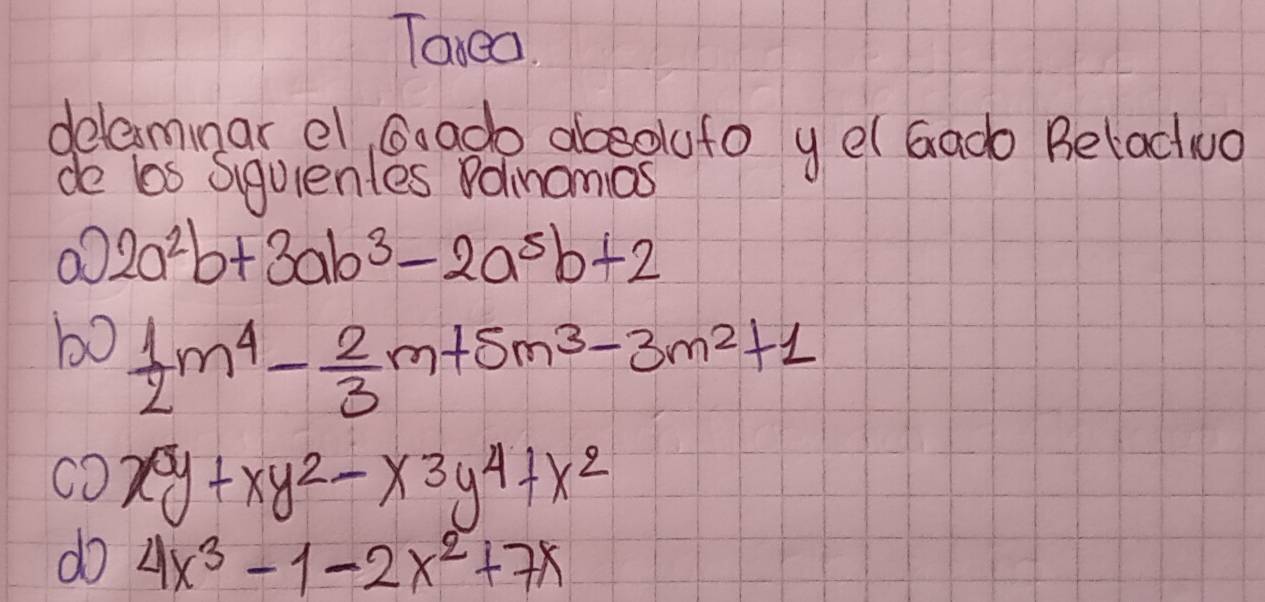 Tarea.
determinar el Grado absoluto y el Grado Relactivo
de los Siguientes Polinomios
a) 2a²b+3ab³-2a⁵b+2
b) 1/2 m⁴ - 2/3 m+5m³-3m²+1
c) x⁵y+xy²-x3y⁴+x²
d) 4x³-1-2x²+7x